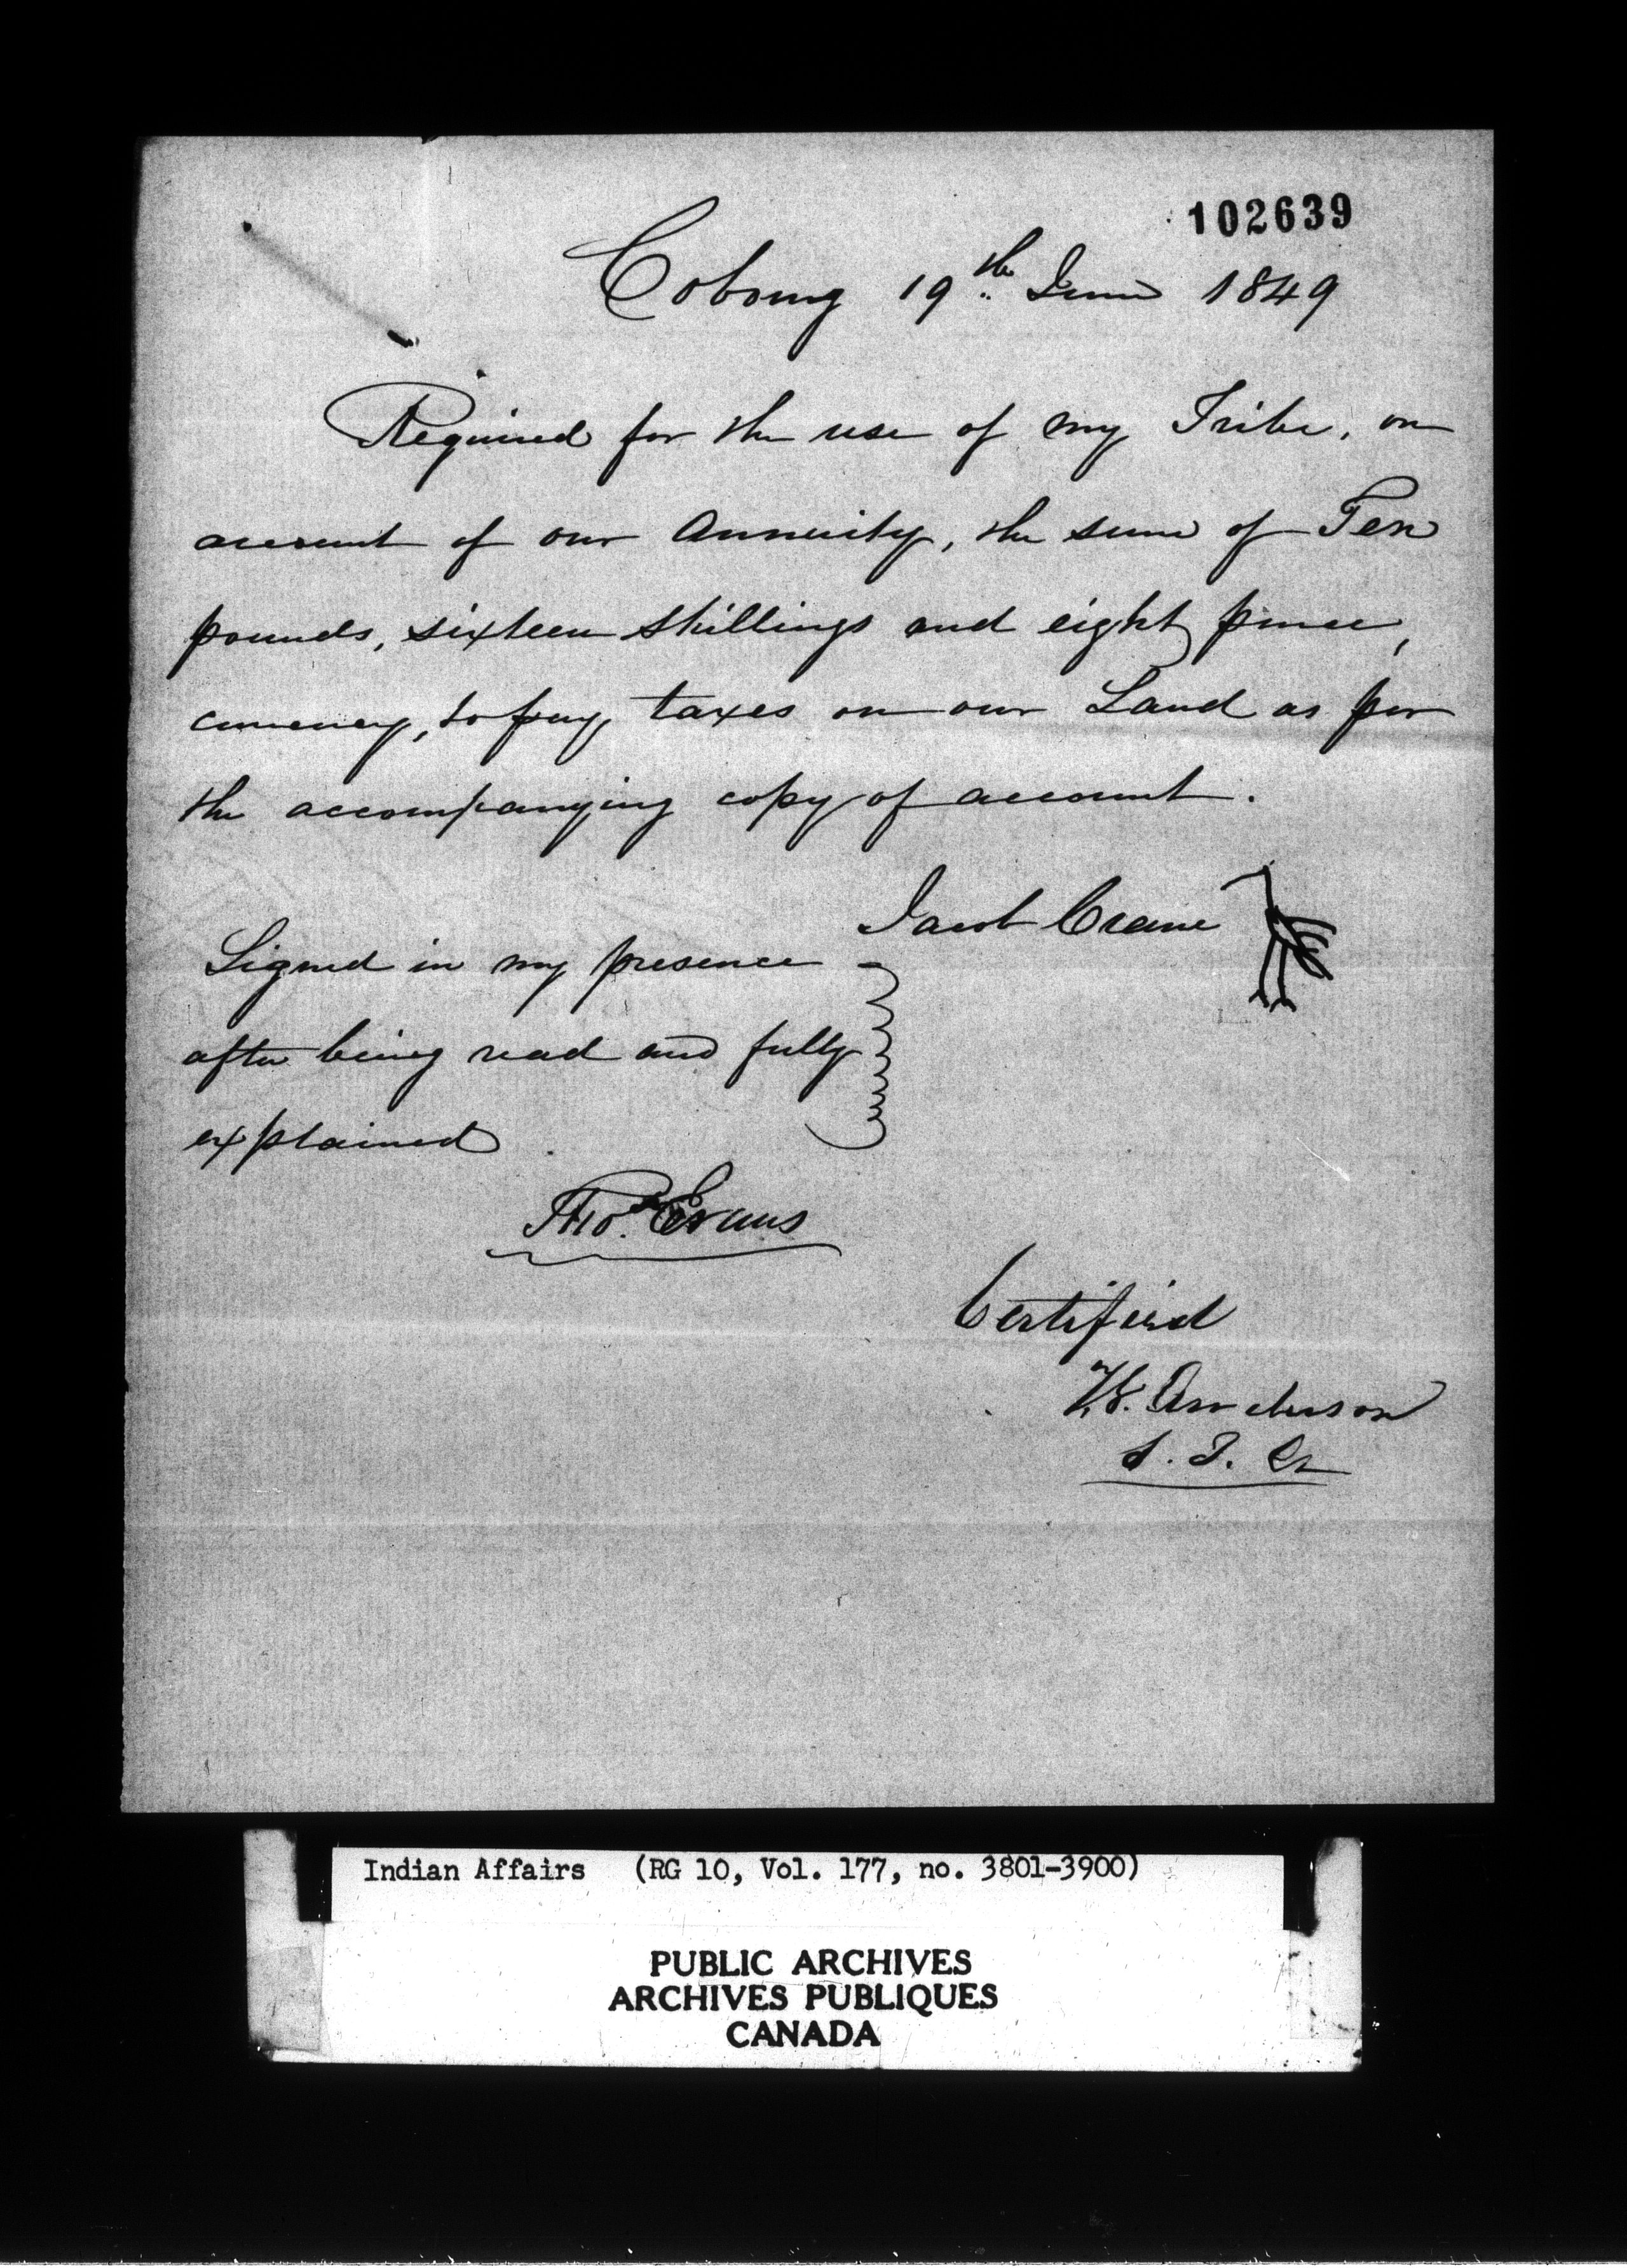 102639
Cobourg 19th June 1849
Required for the use of my Tribe, on
account of our Annuity, the sum of Ten
pounds, sixteen shillings and eight pence,
currency, to pay taxes on our Land as per
the accompanying copy of account.
Jacob Crane
Signed in my presence
after being read and fully
explained
Thos. Evans
Certified
Anderson
S. I. A
Indian Affairs (RG 10, Vol. 177, no. 3801-3900)
PUBLIC ARCHIVES
ARCHIVES PUBLIQUES
CANADA